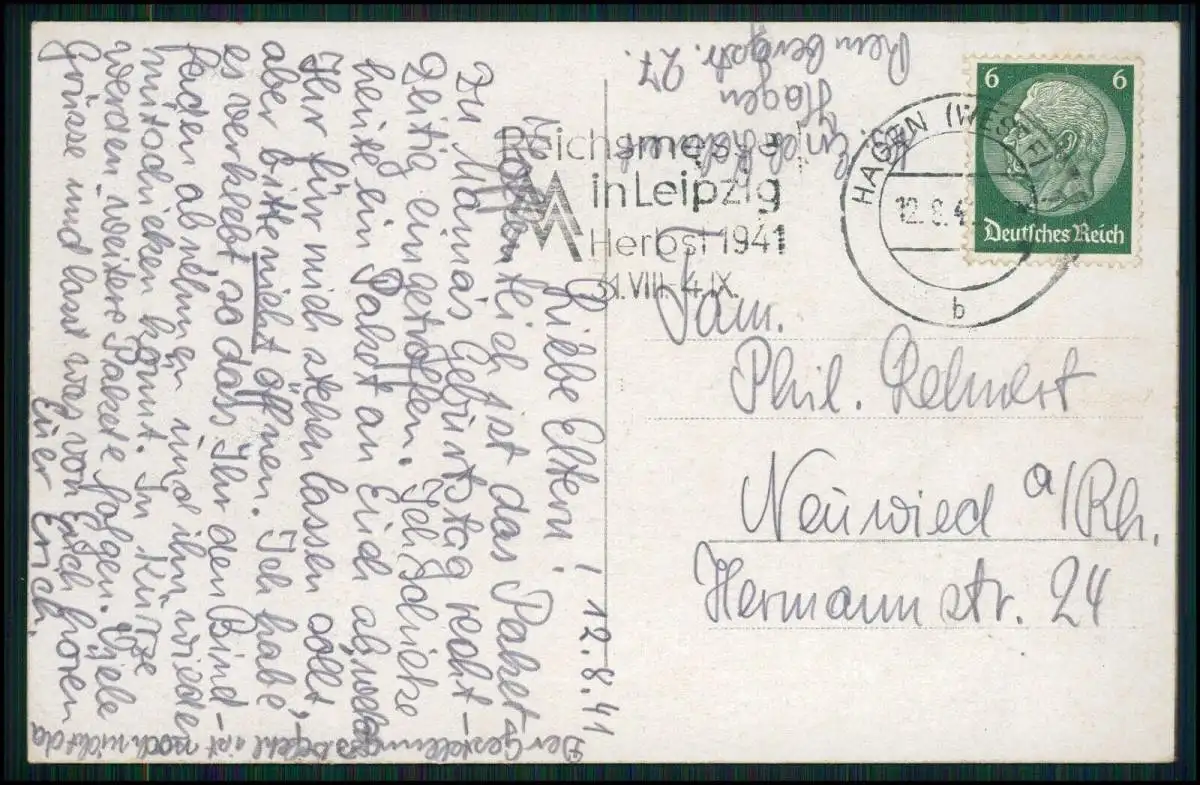 12.8.41
Liebe Eltern!
Hoffentlich ist das Paket
zu Mama's Geburtstag recht-
zeitig eingetroffen. Ich schicke
heute ein Paket an Euch ab, welches
Ihr für mich stehen lassen sollt,
aber bitte nicht öffnen. Ich habe
es verklebt so dass Ihr den Bind-
faden abnehmen und ihn wieder
mitschicken könnt. In Kürze
werden weitere Pakete folgen. Viele
Grüsse und lasst was von Euch hören
Euer Erich.
Der Gestellungsbefehl ist noch nicht da
Hagen
Rembergstr. 27.
Reichsmesse
in Leipzig
Herbst 1941
31.VIII.-4.IX.
HAGEN (WESTF)
12.8.4
b
6 6
Deutsches Reich
Fam.
Phil.
Neuwied a/Rh.
Hermannstr. 24